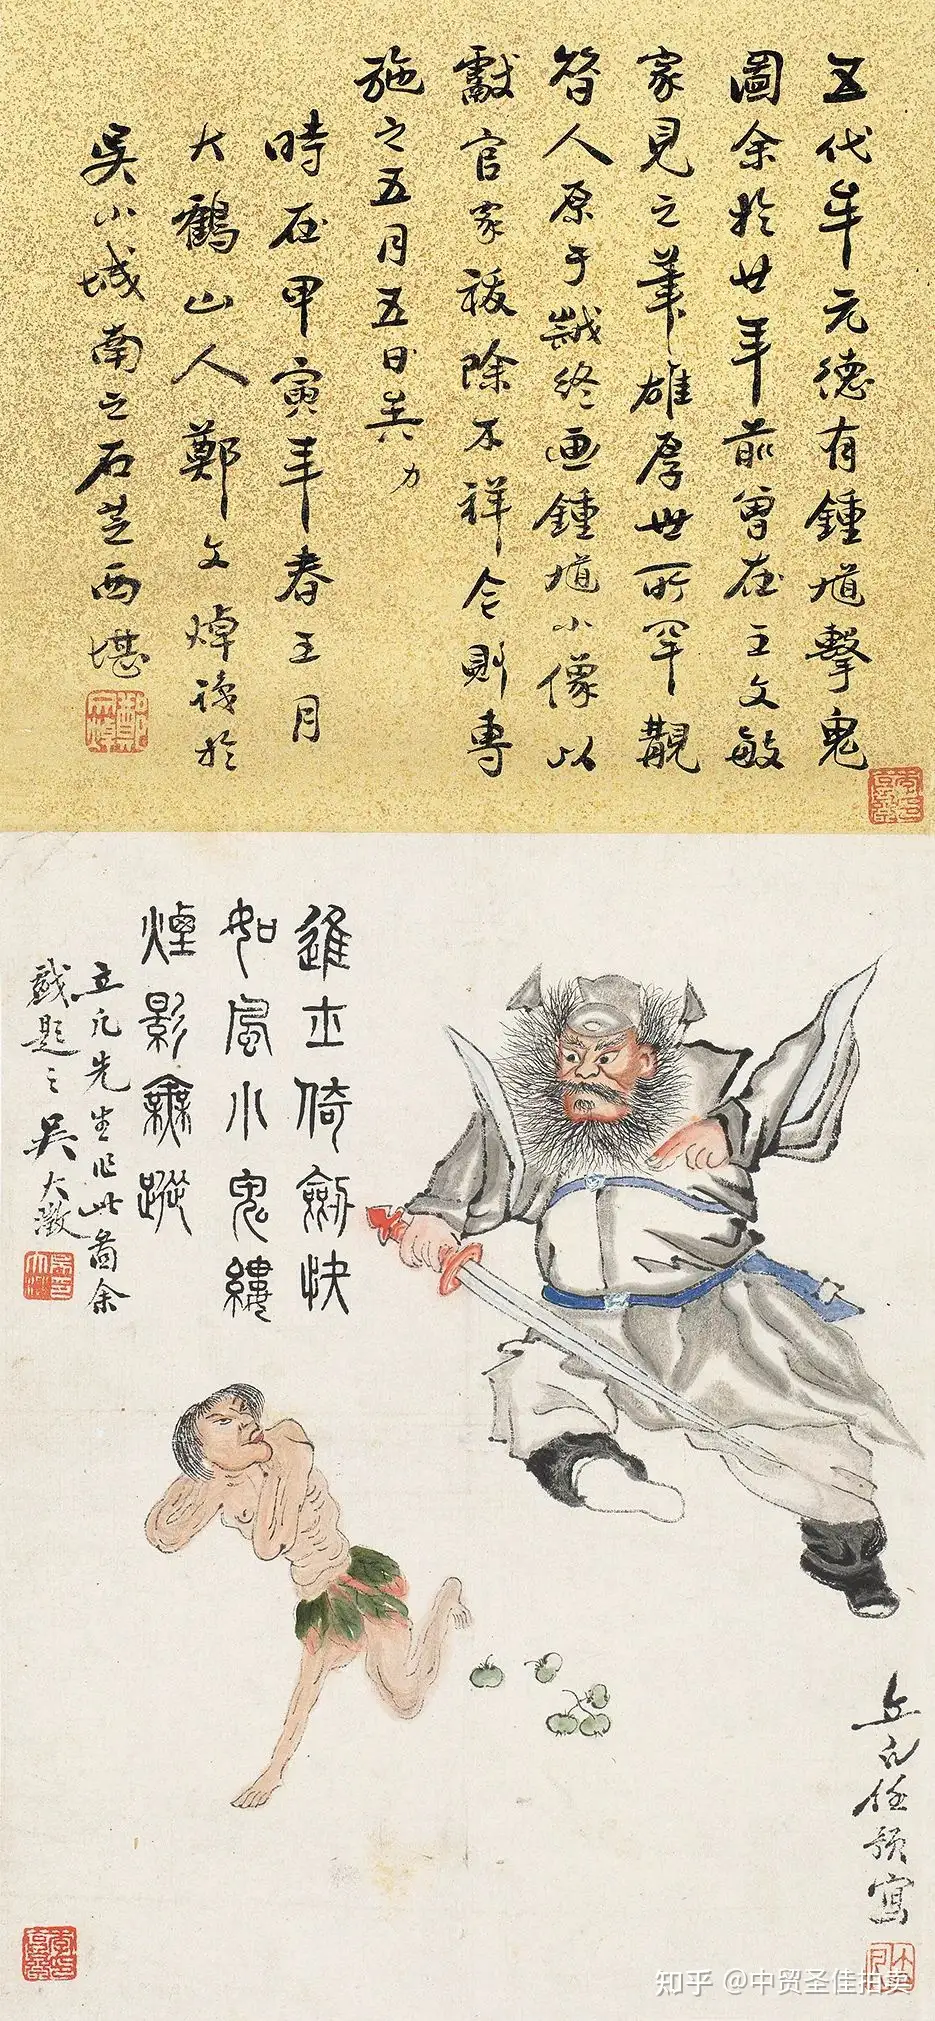 五代牟元德有鍾馗擊鬼
圖余於廿年前曾在王文敏
家見之筆雄厚世所罕覯
昔人原于歲終画鍾馗小像以
獻官家祓除不祥今則專
施之五月五日矣 力
時在甲寅年春王月
大鶴山人鄭文焯識於
吳小城南之石芝西堪
進士倚劍快
如風小鬼縷
煙影無蹤
立凡先生作此圖余
戲題之吳大澂
立凡任預寫
知乎 @中贸圣佳拍卖